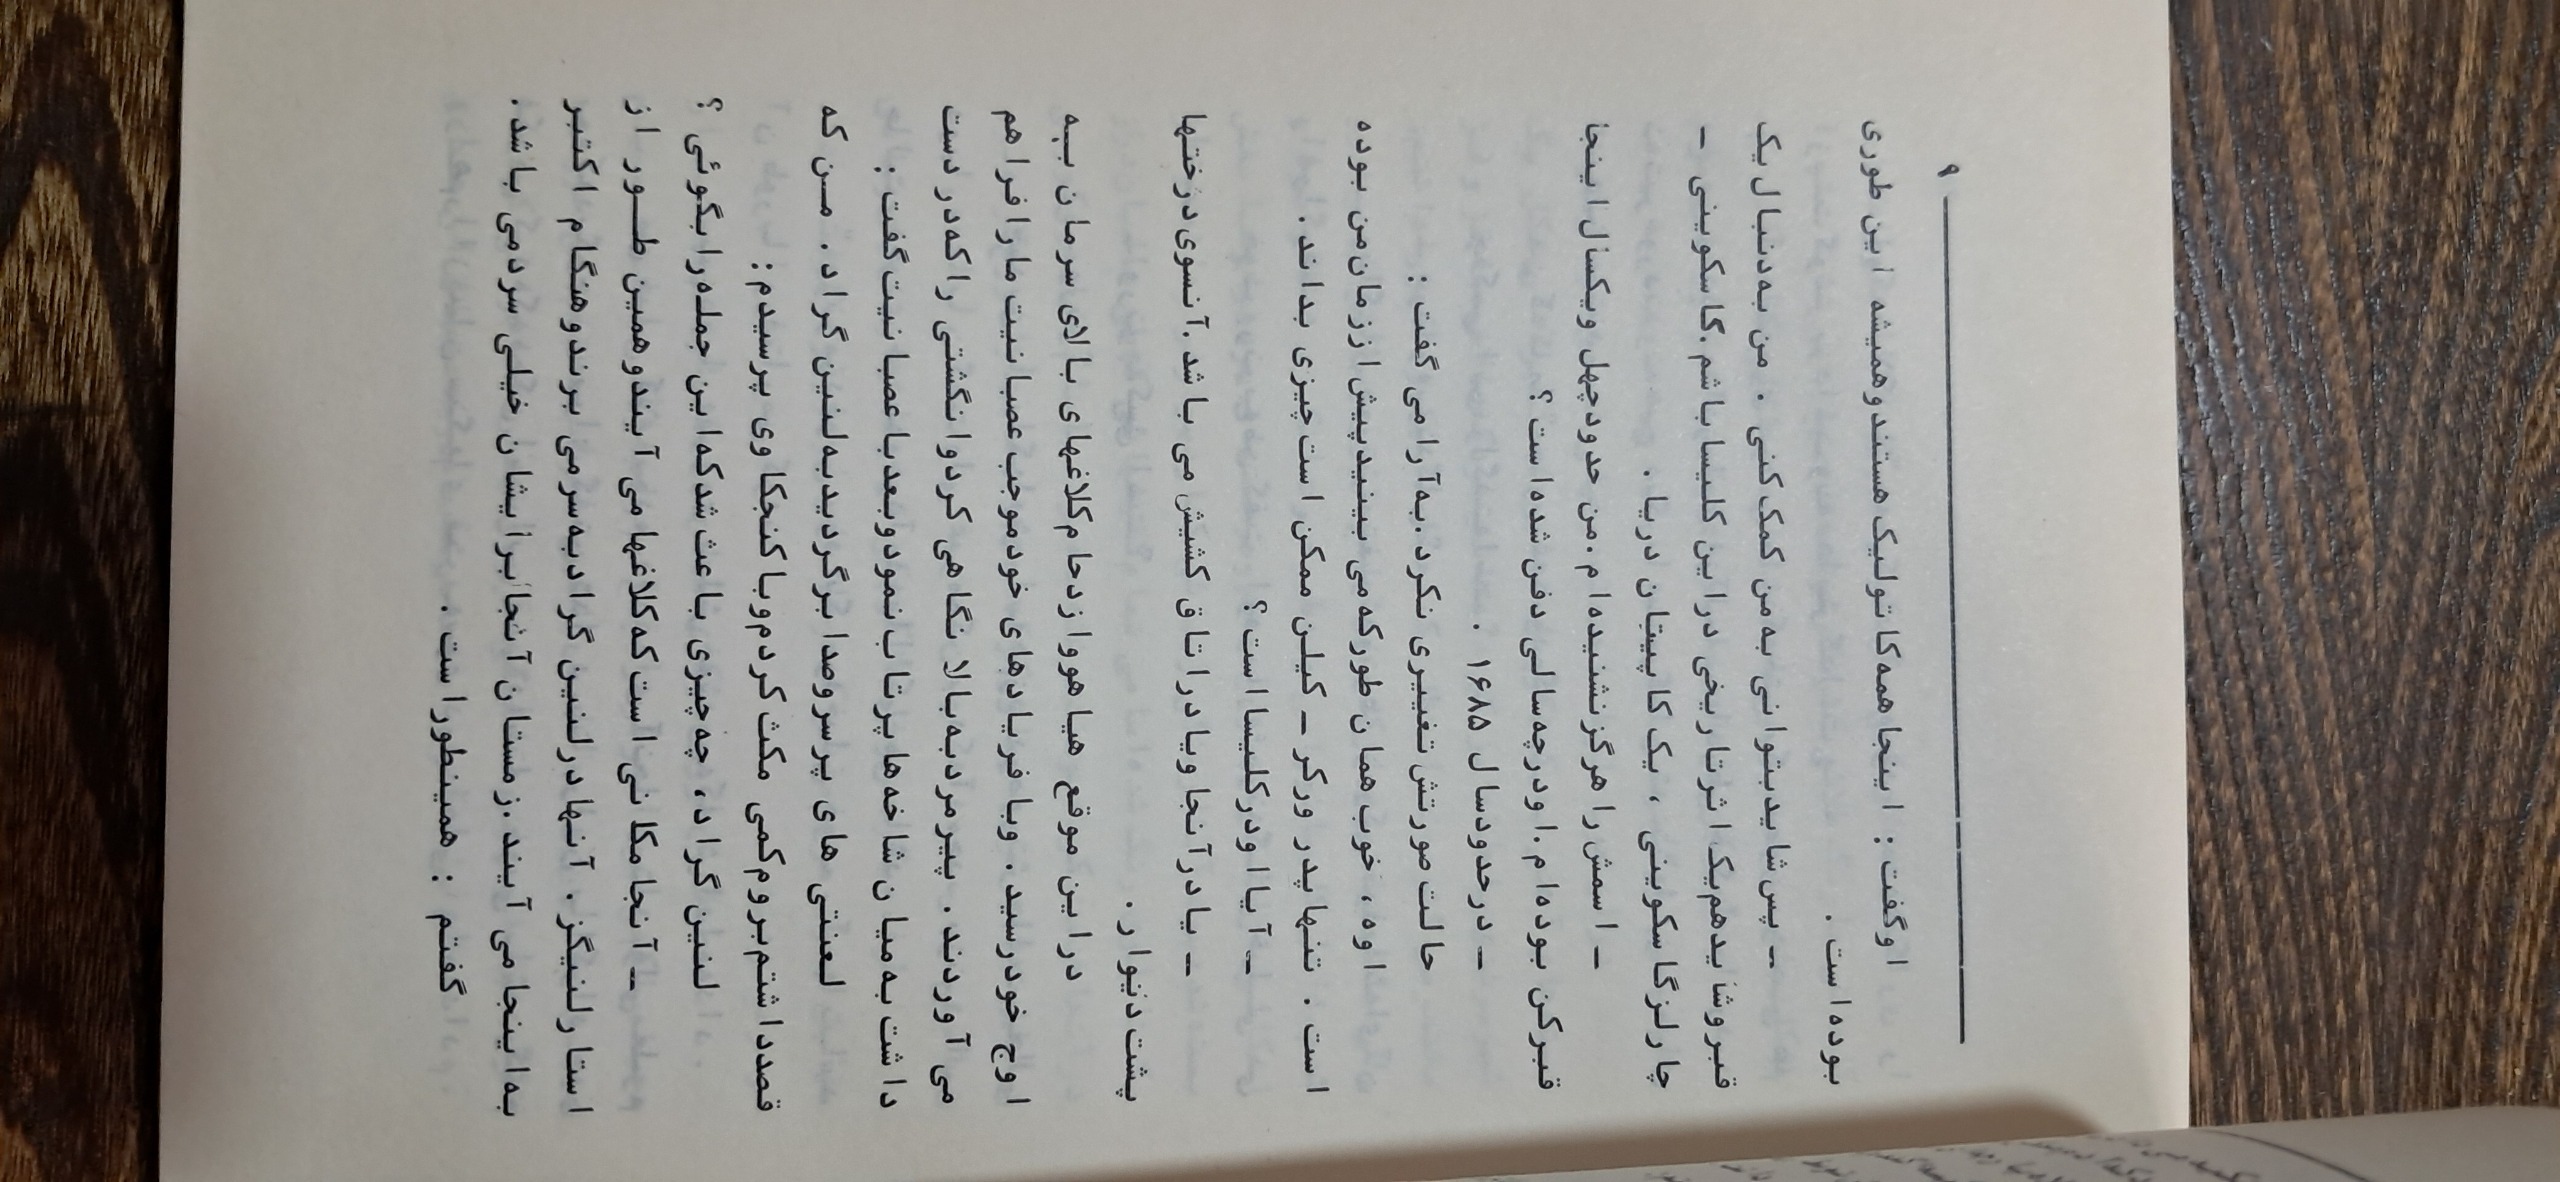 ۹
اوگفت : اینجا همه‌کاتولیک هستندوهمیشه این طوری
بوده‌است .
ــ پس‌شایدبتوانی به‌من کمک‌کنی . من به‌دنبال‌یک
قبروشایدهم‌یک اثرتاریخی دراین کلیساباشم .کاسکوینی ــ
چارلزگاسکوینی ، یک‌کاپیتان دریا .
ــ اسمش راهرگزنشنیده‌ام .من حدودچهل ویکسال‌اینجا
قبرکن بوده‌ام .اودرچه‌سالی دفن شده‌است ؟
ــ درحدودسال ۱۶۸۵ .
حالت‌صورتش‌تغییری نکرد.به‌آرامی گفت :
اوه ، خوب‌همان طورکه‌می بینیدپیش اززمان‌من بوده
است . تنهاپدر ورکر ــ کیلن ممکن است‌چیزی بداند .
ــ آیا اودرکلیسااست ؟
ــ یادرآنجا ویادراتاق کشیش می باشد .آنسوی‌درختها
پشت‌دیوار .
دراین موقع هیاهووازدحام‌کلاغهای بالای سرمان بـه
اوج خودرسید . وبا فریادهای خودموجب‌عصبانیت مارافراهم
می آوردند . پیرمردبه‌بالا نگاهی کردوانگشتی راکه‌دردست
داشت به‌میان شاخه‌هاپرتاب‌نمودوبعدباعصبانیت‌گفت :
لعنتی های پرسروصدا برگردیدبه‌لنین گراد . مـن که
قصدداشتم‌بروم‌کمی مکث‌کردم‌وباکنجکاوی پرسیدم :
لنین گراد، چه‌چیزی باعث‌شدکه‌این جمله‌رابگوئی ؟
ــ آنجامکانی است‌که‌کلاغهامی آیندوهمین طـور از
استارلنیگز . آنهادرلنین گرادبه‌سرمی برندوهنگام اکتبر
به‌اینجامی آیند .زمستان آنجابرایشان خیلی سردمی باشد.
گفتم : همینطوراست .